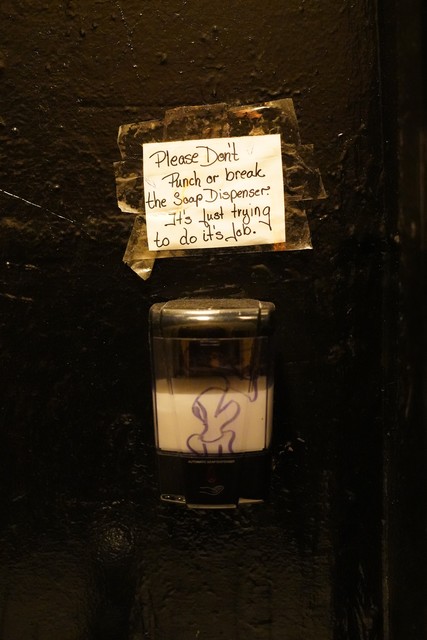 Please Don't
Punch or break
the Soap Dispenser.
It's Just trying
to do it's Job.